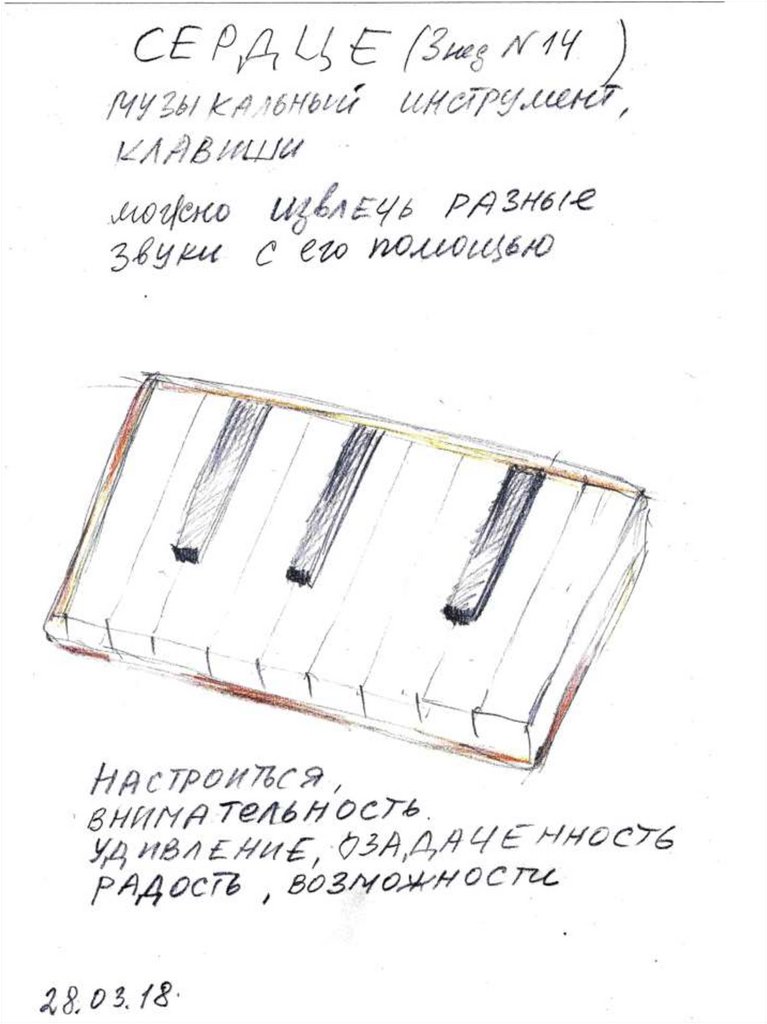 СЕРДЦЕ (Знед N 14)
МУЗЫКАЛЬНЫЙ ИНСТРУМЕНТ,
КЛАВИШИ
можно извлечь разные
звуки с его помощью
НАСТРОИТЬСЯ,
ВНИМАТЕЛЬНОСТЬ.
УДИВЛЕНИЕ, ОЗАДАЧЕННОСТЬ
РАДОСТЬ, ВОЗМОЖНОСТИ
28.03.18.